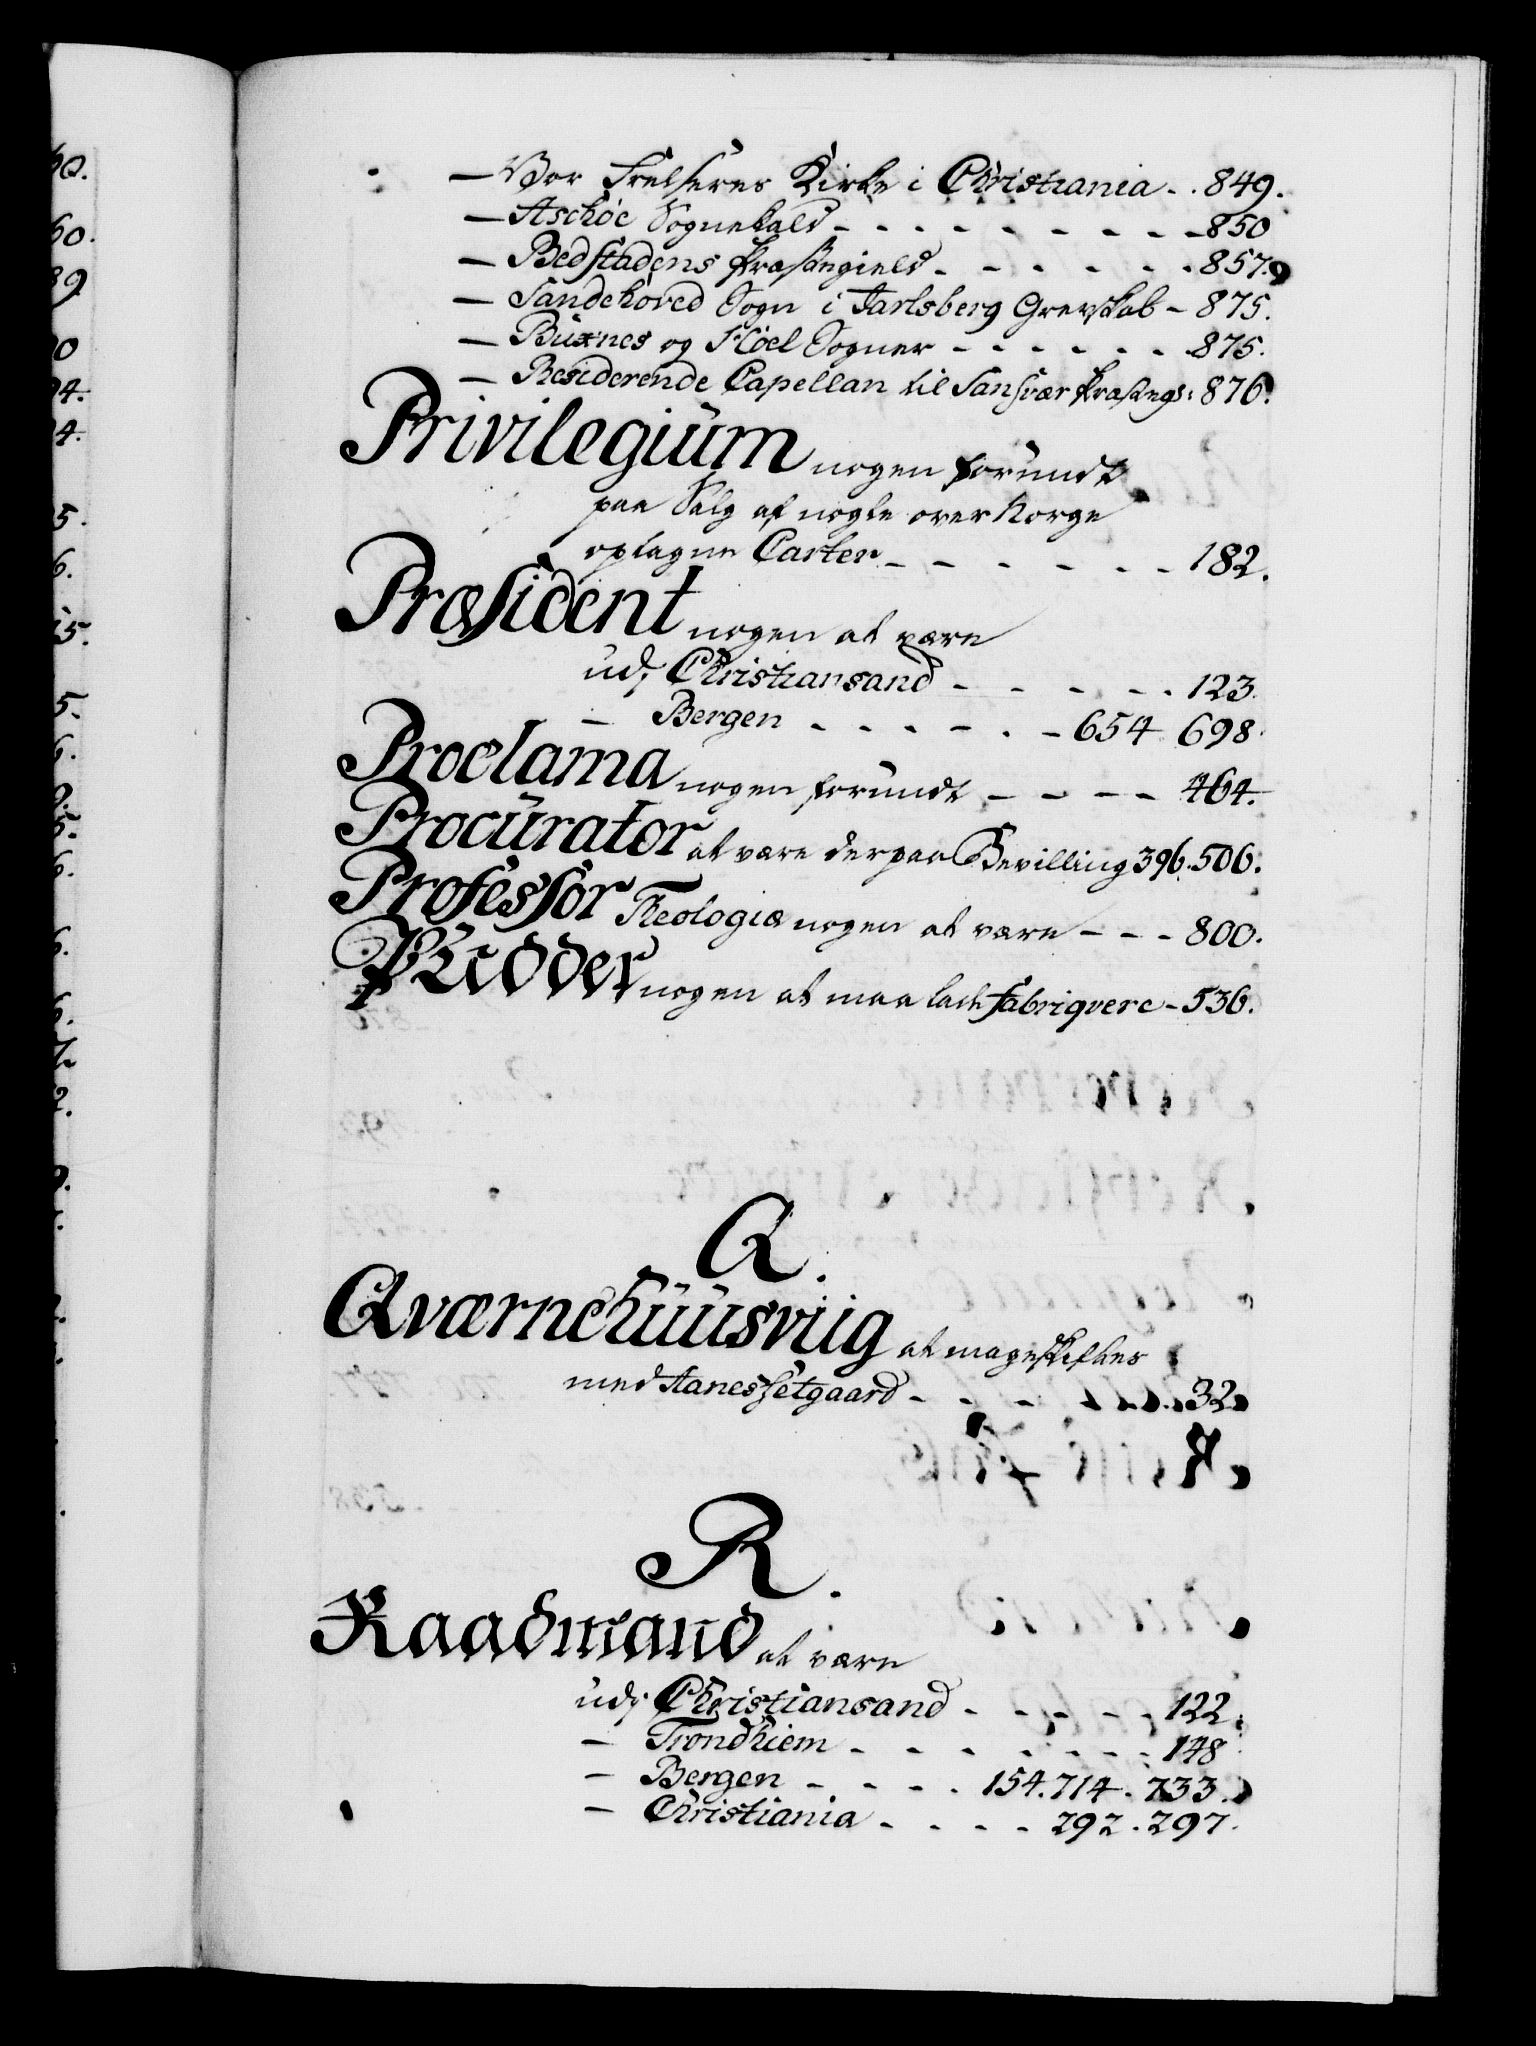 — Vor Frelseres Kirke i Christiania - . 849.
— Aschöe Sognekald - - - - - - - - - 850
— Bedstadens Præstegield - - - - - - 857.
— Sandehöved Sogn i Jarlsberg Grevskab - 875.
— Buxnes og Höel Sogner - - - - - - 875.
— Residerende Capellan til Sansvær Præsteg: 876.
Privilegium nogen forundt
paa Salg af nogle over Norge
optagne Carter - - - - - - 182.
Præsident nogen at være
udj Christiansand - - - - - 123.
— Bergen - - - - - - 654 698.
Proclama nogen forundt - - - - 464.
Procurator at være derpaa Bevilling 396. 506.
Professor Theologiæ nogen at være - - - 800.
Pudder nogen at maa lade fabriqvere - 536.
Q.
Qværnehuusviig at mageskiftes
med Aanessetgaard - - - - - - 32.
R.
Raadmand at være
udj Christiansand - - - - - 122.
— Trondhiem - - - - - - - 148
— Bergen - - - - 154. 714. 733.
— Christiania - - - - 292. 297.